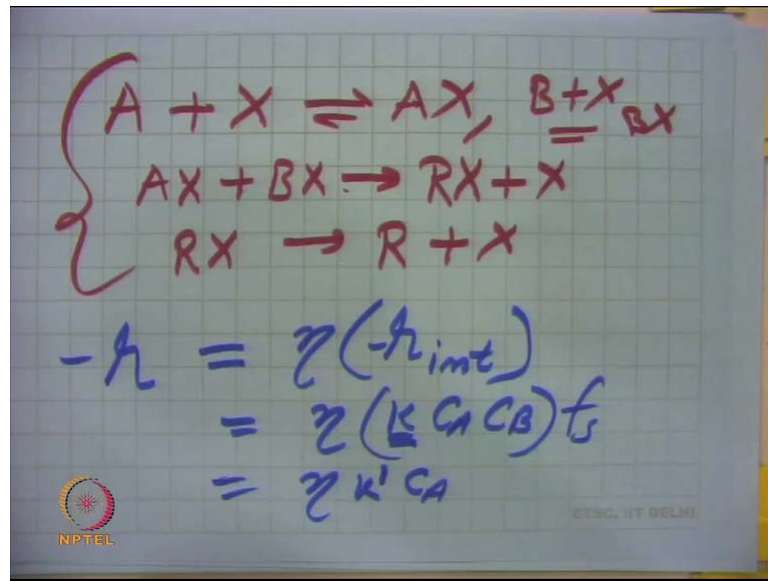 A + X ⇌ AX, B+X = BX
AX + BX → RX + X
RX → R + X
-r = η(-r_int)
= η(k C_A C_B) f_s
= η k' C_A
NPTEL
ETSC, IIT DELHI